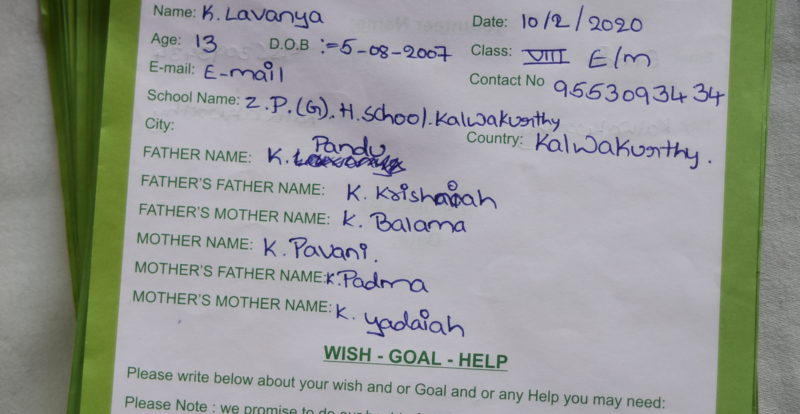 Name: K. Lavanya Date: 10/2/2020
Age: 13 D.O.B :=5-08-2007 Class: VIII E/m
E-mail: E-mail Contact No 9553093434
School Name: Z.P.(G).H.School.Kalwakurthy
City: Country: Kalwakurthy.
FATHER NAME: K. Pandu
FATHER'S FATHER NAME: K. Krishnaiah
FATHER'S MOTHER NAME: K. Balama
MOTHER NAME: K. Pavani.
MOTHER'S FATHER NAME: K. Padma
MOTHER'S MOTHER NAME: K. yadaiah
WISH - GOAL - HELP
Please write below about your wish and or Goal and or any Help you may need:
Please Note : we promise to do our